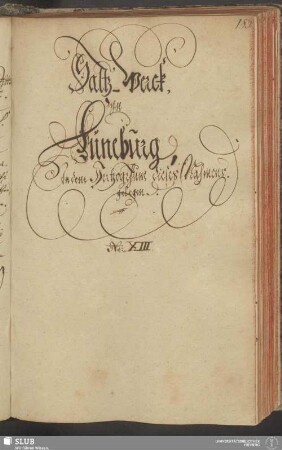 Saltz-Werck,
Lüneburg,
in dem Hertzogthum dieses Nahmens
gelegen.
No. XIII
SLUB
Wir führen Wissen.